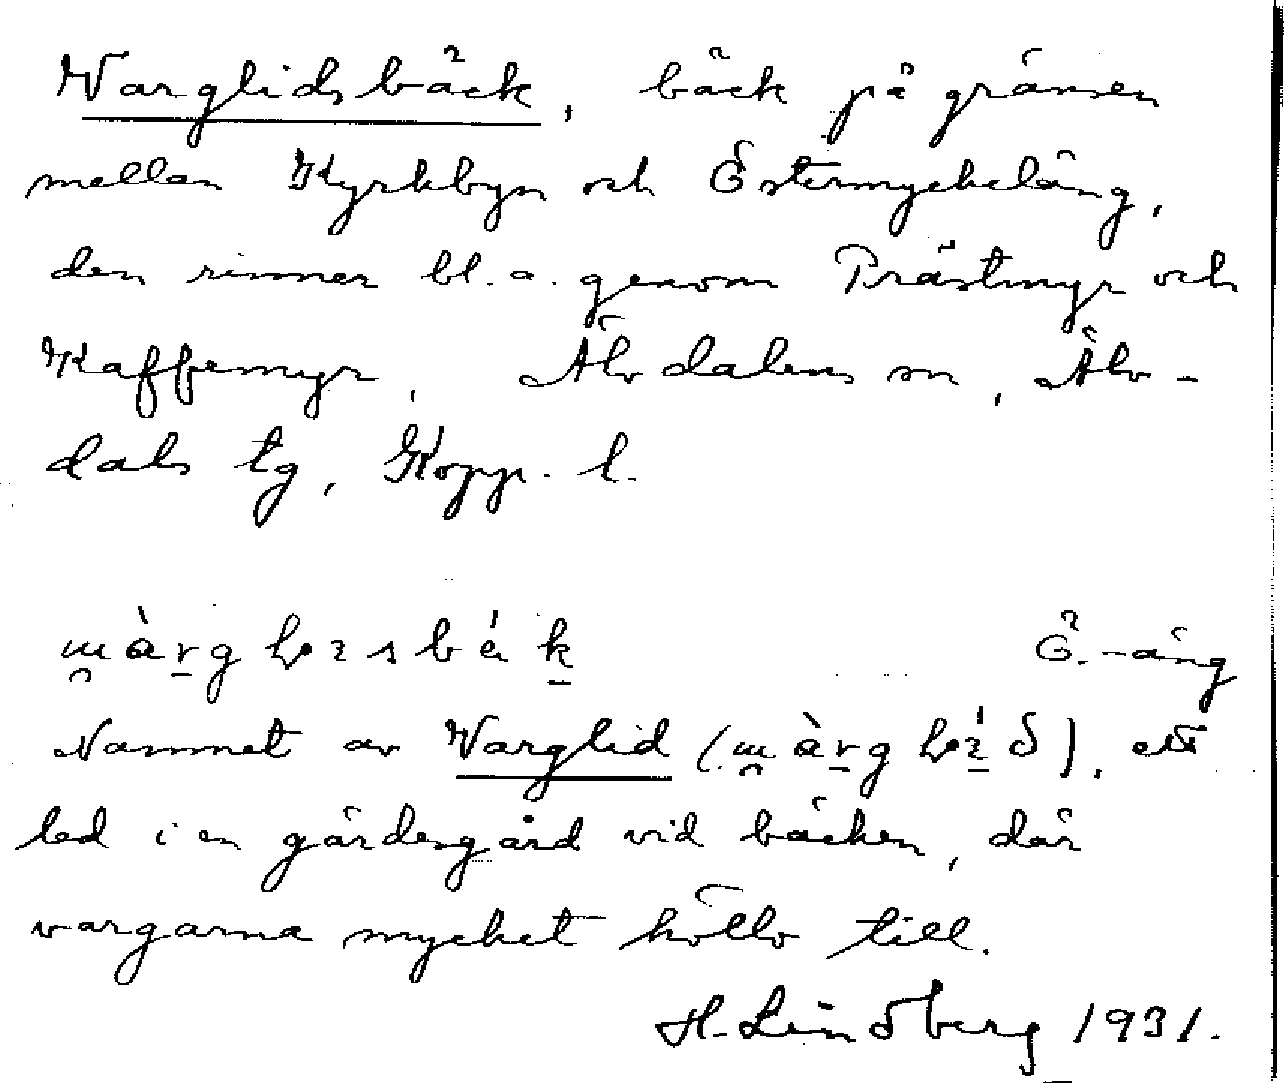 Varglidsbäck, bäck på gränsen
mellan Kyrkbyn och Östermyckeläng,
den rinner bl.a. genom Prästmyr och
Kaffemyr, Älvdalens sn, Älv-
dals tg, Kopp. l.
Ö.-äng
Namnet av Varglid, ett
led i en gärdesgård vid bäcken, där
vargarna mycket höllo till.
H. Lindberg 1931.